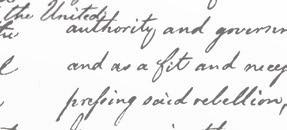 the United
the authority and govern
and as a fit and nece
pressing said rebellion,